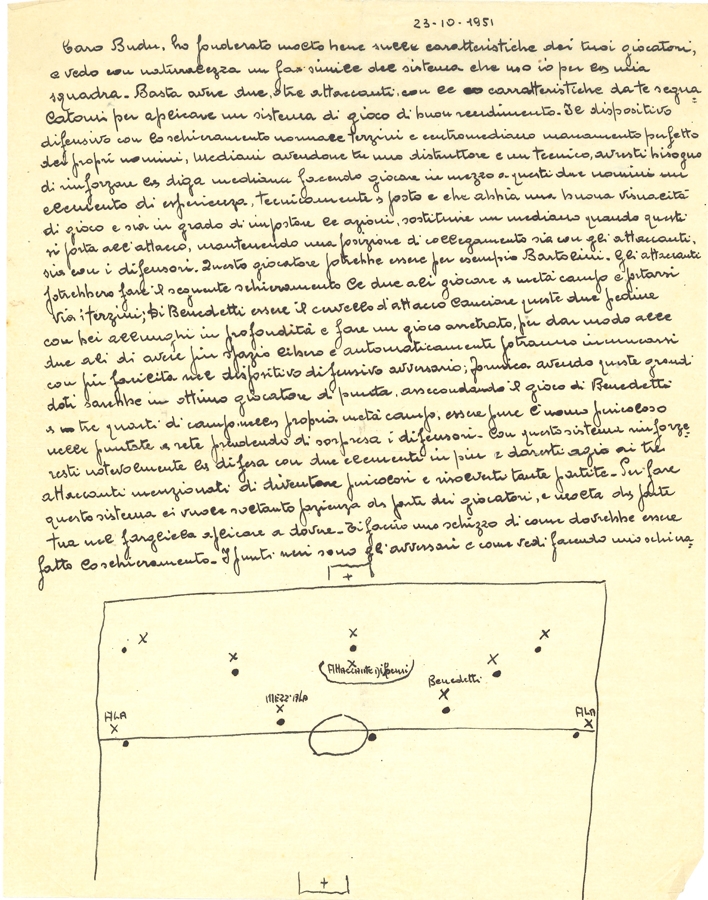 23-10-1951
Caro Budu, ho ponderato molto bene sulle caratteristiche dei tuoi giocatori,
e vedo con naturalezza un fac simile del sistema che uso io per la mia
squadra - Basta avere due, o tre attaccanti, con le carratteristiche da te segna=
latomi per aplicare un sistema di gioco di buon rendimento - Il dispositivo
difensivo con lo schieramento normale terzini e centromediano marcamento perfetto
dei propri uomini, mediani avendone tu uno distruttore e un tecnico, avresti bisogno
di rinforzare la diga mediana facendo giocare in mezzo a questi due uomini un
elemento di esperienza, tecnicamente a posto e che abbia una buona visualità
di gioco e sia in grado di impostare le azioni, sostituire un mediano quando questi
si porta all'attacco, mantenendo una posizione di collegamento sia con gli attaccanti,
sia con i difensori. Questo giocatore potrebbe essere per esempio Bartolini - Gli attaccanti
potrebbero fare il seguente schieramento le due ali giocare a metà campo e portarsi
via i terzini; Di Benedetti essere il cervello d'attacco lanciare queste due pedine
con bei allunghi in profondità e fare un gioco arretrato, per dar modo alle
due ali di avere più spazio libero e automaticamente potranno incunearsi
con più facilità nel dispositivo difensivo avversario; avendo queste grandi
doti sarebbe un ottimo giocatore di punta, assecondando il gioco di Benedetti
a tre quarti di campo nella propria metà campo, essere pure l'uomo pericoloso
nelle puntate a rete prendendo di sorpresa i difensori - Con questo sistema rinforze=
resti notevolmente la difesa con due elementi in più e daresti agio ai tre
attaccanti menzionati di diventare pericolosi e risolverti tante partite - Per fare
questo sistema ci vuole soltanto pazienza da parte dei giocatori, e molta da parte
tua nel fargliela aplicare a dovere - Ti faccio uno schizzo di come dovrebbe essere
fatto lo schieramento - I punti neri sono gli avversari e come vedi facendo uno schiera=
ATTACCANTE Difensori
Benedetti
MEZZ'ALA
ALA
ALA